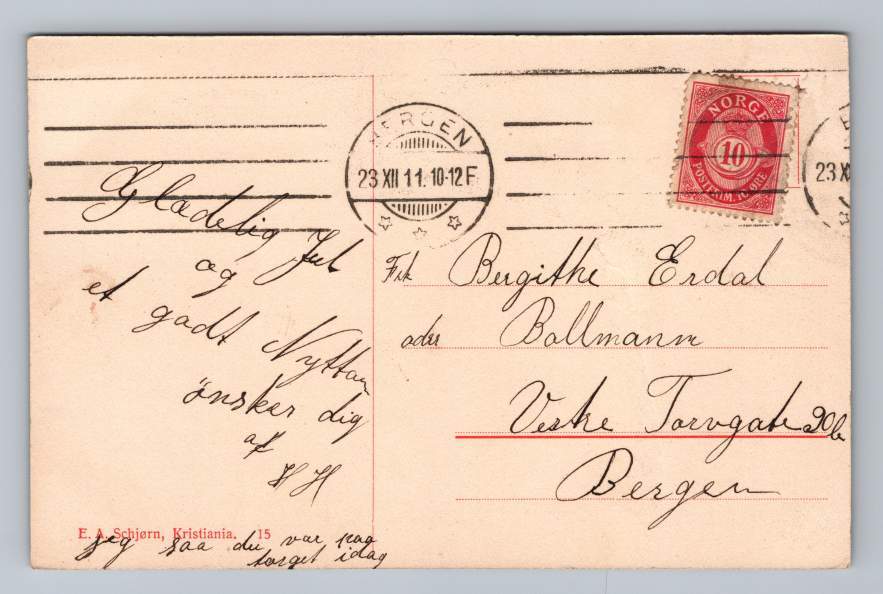 BERGEN
23 XII 11. 10-12 F
NORGE
10
POSTFRIM. 10 ØRE
23 X
Glædelig Jul
og
et godt Nyttaar
ønsker dig
af
H H
jeg saa du var paa
torget idag
Frk Bergithe Erdal
adr Bollmann
Vestre Torvgate 20b
Bergen
E. A. Schjørn, Kristiania. 15